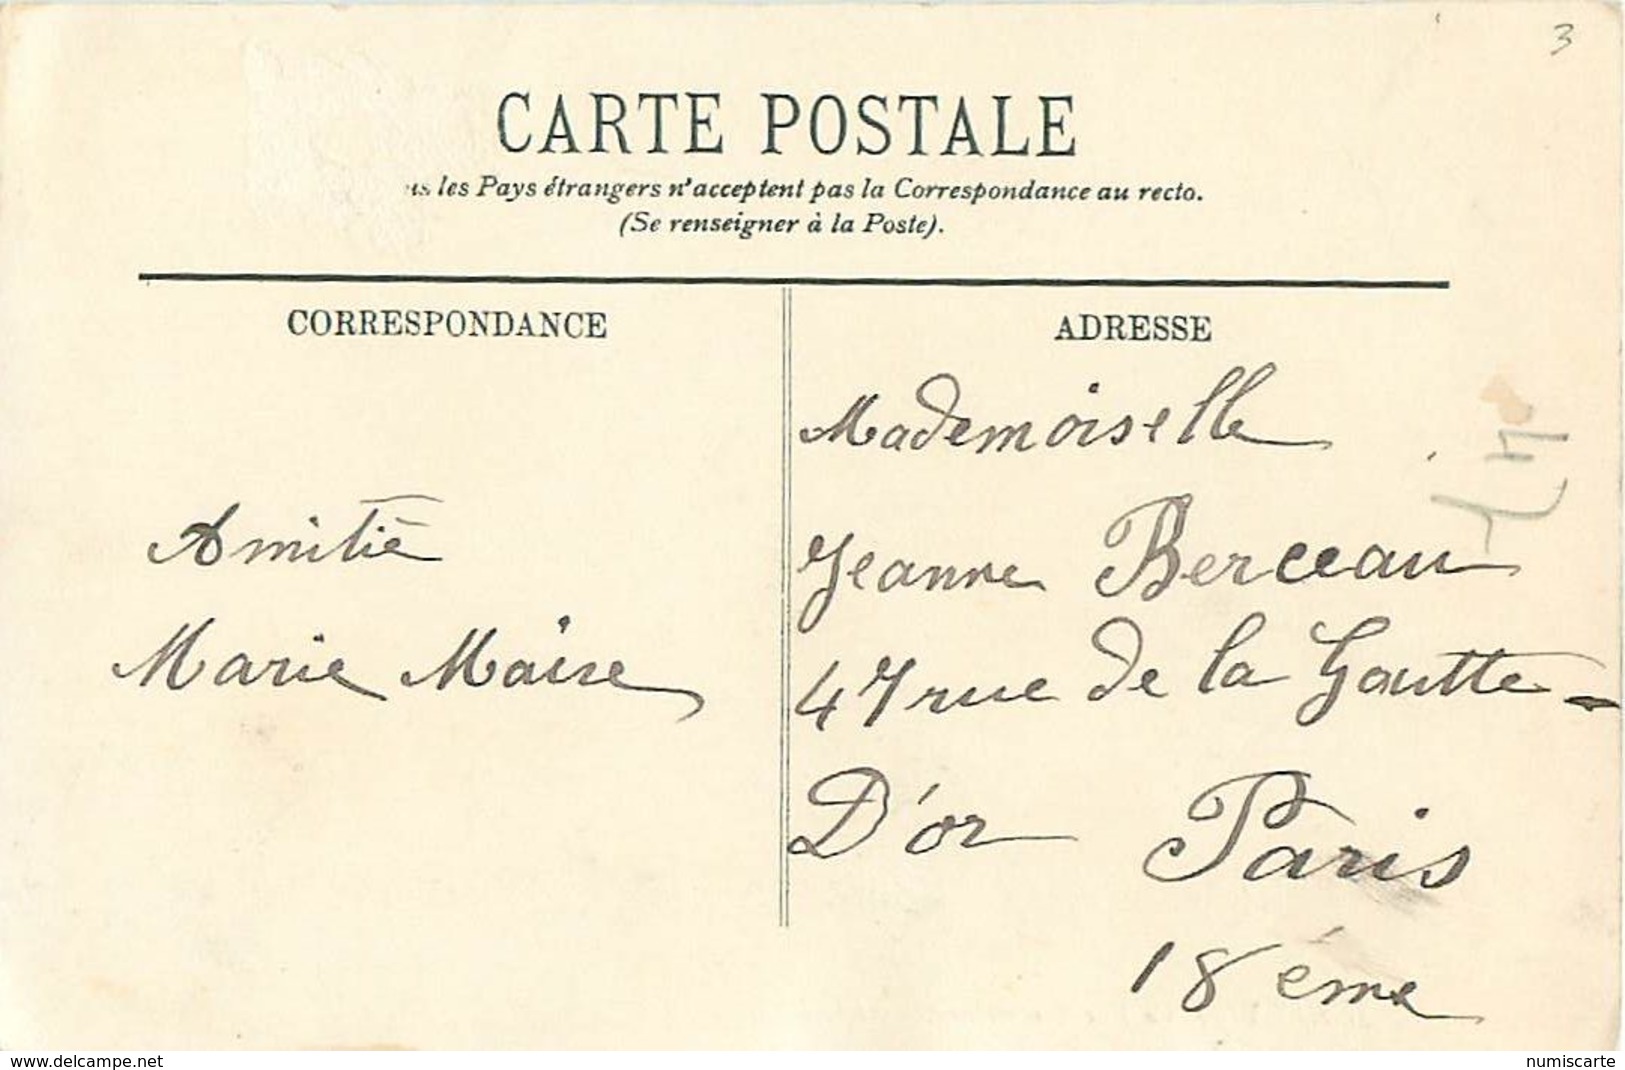 3
CARTE POSTALE
les Pays étrangers n'acceptent pas la Correspondance au recto.
(Se renseigner à la Poste).
CORRESPONDANCE
Amitié
Marie Maire
ADRESSE
Mademoiselle
Jeanne Berceau
47 rue de la Goutte-
D'or Paris
18 éme
www.delcampe.net
numiscarte